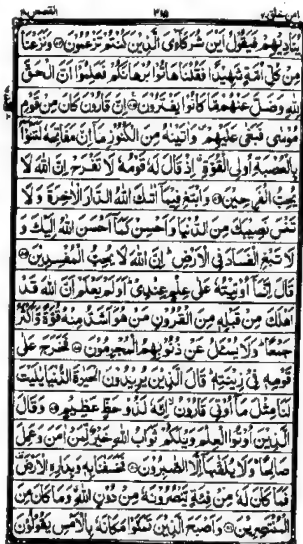 امن خلق ٢٠ ٣١٥ القصص ٢٨
يُنَادِيْهِمْ فَيَقُوْلُ اَيْنَ شُرَكَآءِىَ الَّذِيْنَ كُنْتُمْ تَزْعُمُوْنَ ۝ وَنَزَعْنَا
مِنْ كُلِّ اُمَّةٍ شَهِيْدًا فَقُلْنَا هَاتُوْا بُرْهَانَكُمْ فَعَلِمُوْٓا اَنَّ الْحَقَّ
لِلّٰهِ وَضَلَّ عَنْهُمْ مَّا كَانُوْا يَفْتَرُوْنَ ۝ اِنَّ قَارُوْنَ كَانَ مِنْ قَوْمِ
مُوْسٰى فَبَغٰى عَلَيْهِمْ وَاٰتَيْنٰهُ مِنَ الْكُنُوْزِ مَآ اِنَّ مَفَاتِحَهٗ لَتَنُوْٓاُ
بِالْعُصْبَةِ اُولِى الْقُوَّةِ اِذْ قَالَ لَهٗ قَوْمُهٗ لَا تَفْرَحْ اِنَّ اللّٰهَ لَا
يُحِبُّ الْفَرِحِيْنَ ۝ وَابْتَغِ فِيْمَآ اٰتٰىكَ اللّٰهُ الدَّارَ الْاٰخِرَةَ وَلَا
تَنْسَ نَصِيْبَكَ مِنَ الدُّنْيَا وَاَحْسِنْ كَمَآ اَحْسَنَ اللّٰهُ اِلَيْكَ وَ
لَا تَبْغِ الْفَسَادَ فِى الْاَرْضِ اِنَّ اللّٰهَ لَا يُحِبُّ الْمُفْسِدِيْنَ ۝
قَالَ اِنَّمَآ اُوْتِيْتُهٗ عَلٰى عِلْمٍ عِنْدِىْ اَوَلَمْ يَعْلَمْ اَنَّ اللّٰهَ قَدْ
اَهْلَكَ مِنْ قَبْلِهٖ مِنَ الْقُرُوْنِ مَنْ هُوَ اَشَدُّ مِنْهُ قُوَّةً وَّاَكْثَرُ
جَمْعًا وَلَا يُسْـَٔلُ عَنْ ذُنُوْبِهِمُ الْمُجْرِمُوْنَ ۝ فَخَرَجَ عَلٰى
قَوْمِهٖ فِىْ زِيْنَتِهٖ قَالَ الَّذِيْنَ يُرِيْدُوْنَ الْحَيٰوةَ الدُّنْيَا يٰلَيْتَ
لَنَا مِثْلَ مَآ اُوْتِىَ قَارُوْنُ اِنَّهٗ لَذُوْ حَظٍّ عَظِيْمٍ ۝ وَقَالَ
الَّذِيْنَ اُوْتُوا الْعِلْمَ وَيْلَكُمْ ثَوَابُ اللّٰهِ خَيْرٌ لِّمَنْ اٰمَنَ وَعَمِلَ
صَالِحًا وَلَا يُلَقّٰىهَآ اِلَّا الصّٰبِرُوْنَ ۝ فَخَسَفْنَا بِهٖ وَبِدَارِهِ الْاَرْضَ
فَمَا كَانَ لَهٗ مِنْ فِئَةٍ يَّنْصُرُوْنَهٗ مِنْ دُوْنِ اللّٰهِ وَمَا كَانَ مِنَ
الْمُنْتَصِرِيْنَ ۝ وَاَصْبَحَ الَّذِيْنَ تَمَنَّوْا مَكَانَهٗ بِالْاَمْسِ يَقُوْلُوْنَ